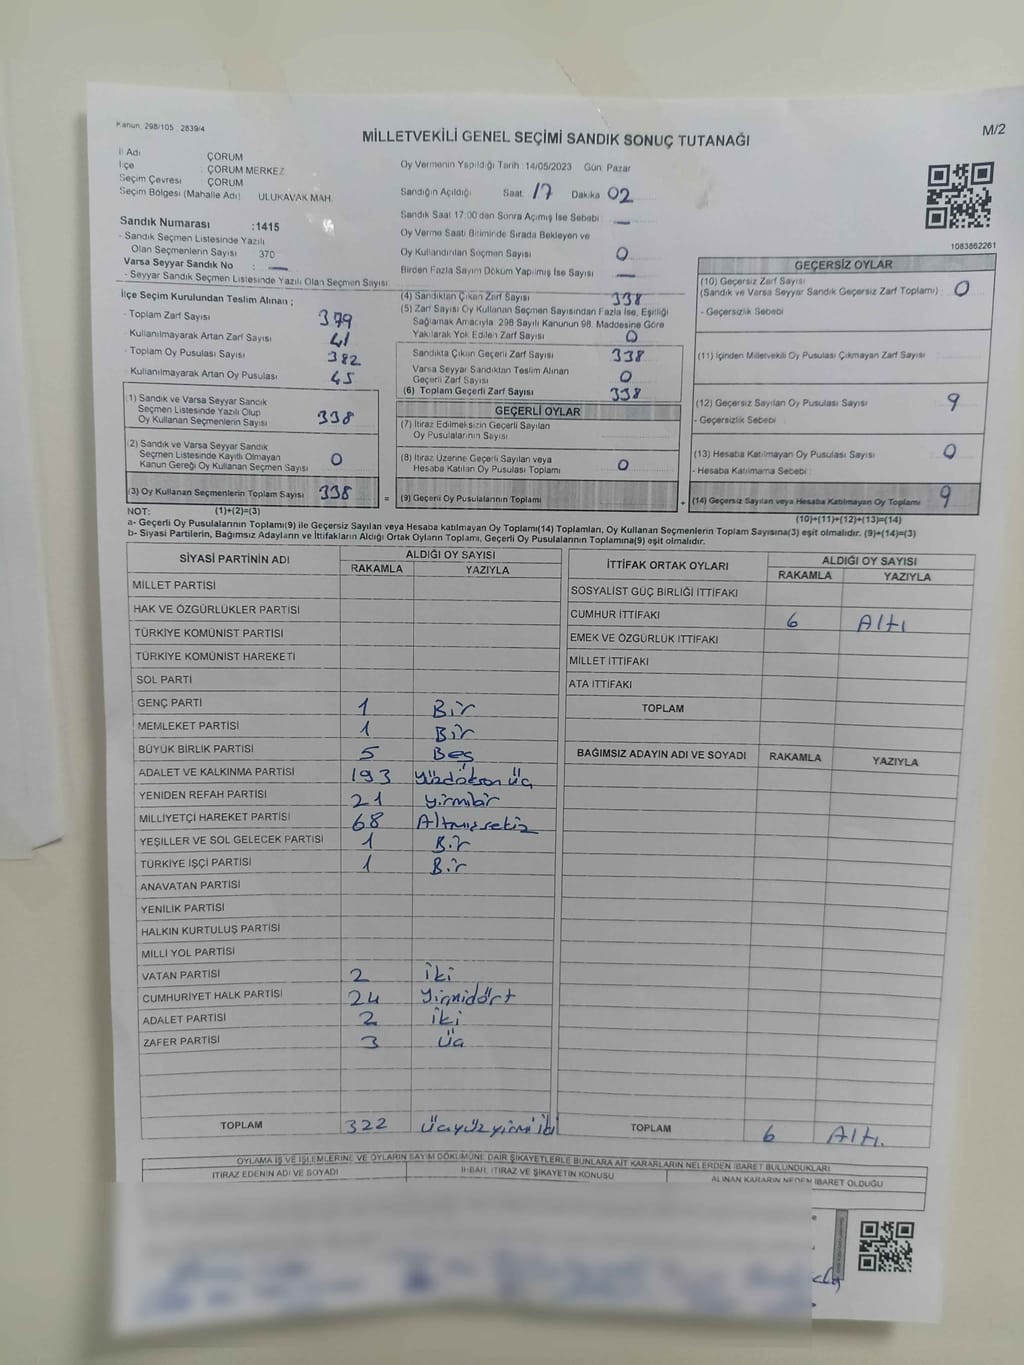 Kanun: 298/105 , 2839/4
M/2
MİLLETVEKİLİ GENEL SEÇİMİ SANDIK SONUÇ TUTANAĞI
İl Adı : ÇORUM
İlçe : ÇORUM MERKEZ
Seçim Çevresi : ÇORUM
Seçim Bölgesi (Mahalle Adı) : ULUKAVAK MAH.
Oy Vermenin Yapıldığı Tarih :14/05/2023 Gün: Pazar
Sandığın Açıldığı Saat: 17 Dakika 02
Sandık Saat 17:00'den Sonra Açımış İse Sebebi : —
Oy Verme Saati Bitiminde Sırada Bekleyen ve
Oy Kullandırılan Seçmen Sayısı : 0
Birden Fazla Sayım Döküm Yapılmış İse Sayısı : —
1083862261
Sandık Numarası :1415
- Sandık Seçmen Listesinde Yazılı
Olan Seçmenlerin Sayısı 370
Varsa Seyyar Sandık No : —
- Seyyar Sandık Seçmen Listesinde Yazılı Olan Seçmen Sayısı :
İlçe Seçim Kurulundan Teslim Alınan ;
- Toplam Zarf Sayısı : 379
- Kullanılmayarak Artan Zarf Sayısı : 41
- Toplam Oy Pusulası Sayısı : 382
- Kullanılmayarak Artan Oy Pusulası : 45
(1) Sandık ve Varsa Seyyar Sandık
Seçmen Listesinde Yazılı Olup
Oy Kullanan Seçmenlerin Sayısı : 338
(2) Sandık ve Varsa Seyyar Sandık
Seçmen Listesinde Kayıtlı Olmayan
Kanun Gereği Oy Kullanan Seçmen Sayısı : 0
(3) Oy Kullanan Seçmenlerin Toplam Sayısı : 338
(1)+(2)=(3)
(4) Sandıktan Çıkan Zarf Sayısı : 338
(5) Zarf Sayısı Oy Kullanan Seçmen Sayısından Fazla İse, Eşitliği
Sağlamak Amacıyla 298 Sayılı Kanunun 98. Maddesine Göre
Yakılarak Yok Edilen Zarf Sayısı : 0
Sandıkta Çıkan Geçerli Zarf Sayısı : 338
Varsa Seyyar Sandıktan Teslim Alınan
Geçerli Zarf Sayısı : 0
(6) Toplam Geçerli Zarf Sayısı : 338
GEÇERLİ OYLAR
(7) İtiraz Edilmeksizin Geçerli Sayılan
Oy Pusulalarının Sayısı :
(8) İtiraz Üzerine Geçerli Sayılan veya
Hesaba Katılan Oy Pusulası Toplamı : 0
= (9) Geçerli Oy Pusulalarının Toplamı
GEÇERSİZ OYLAR
(10) Geçersiz Zarf Sayısı
(Sandık ve Varsa Seyyar Sandık Geçersiz Zarf Toplamı) : 0
- Geçersizlik Sebebi :
(11) İçinden Milletvekili Oy Pusulası Çıkmayan Zarf Sayısı :
(12) Geçersiz Sayılan Oy Pusulası Sayısı : 9
- Geçersizlik Sebebi :
(13) Hesaba Katılmayan Oy Pusulası Sayısı : 0
- Hesaba Katılmama Sebebi :
+ (14) Geçersiz Sayılan veya Hesaba Katılmayan Oy Toplamı : 9
(10)+(11)+(12)+(13)=(14)
NOT:
a- Geçerli Oy Pusulalarının Toplamı(9) ile Geçersiz Sayılan veya Hesaba katılmayan Oy Toplamı(14) Toplamları, Oy Kullanan Seçmenlerin Toplam Sayısına(3) eşit olmalıdır. (9)+(14)=(3)
b- Siyasi Partilerin, Bağımsız Adayların ve İttifakların Aldığı Ortak Oyların Toplamı, Geçerli Oy Pusulalarının Toplamına(9) eşit olmalıdır.
SİYASİ PARTİNİN ADI ALDIĞI OY SAYISI
RAKAMLA YAZIYLA
MİLLET PARTİSİ
HAK VE ÖZGÜRLÜKLER PARTİSİ
TÜRKİYE KOMÜNİST PARTİSİ
TÜRKİYE KOMÜNİST HAREKETİ
SOL PARTİ
GENÇ PARTİ 1 Bir
MEMLEKET PARTİSİ 1 Bir
BÜYÜK BİRLİK PARTİSİ 5 Beş
ADALET VE KALKINMA PARTİSİ 193 Yüzdoksan üç
YENİDEN REFAH PARTİSİ 21 Yirmibir
MİLLİYETÇİ HAREKET PARTİSİ 68 Altmışsekiz
YEŞİLLER VE SOL GELECEK PARTİSİ 1 Bir
TÜRKİYE İŞÇİ PARTİSİ 1 Bir
ANAVATAN PARTİSİ
YENİLİK PARTİSİ
HALKIN KURTULUŞ PARTİSİ
MİLLİ YOL PARTİSİ
VATAN PARTİSİ 2 iki
CUMHURİYET HALK PARTİSİ 24 Yirmidört
ADALET PARTİSİ 2 iki
ZAFER PARTİSİ 3 üç
TOPLAM 322 üçyüzyirmi iki
İTTİFAK ORTAK OYLARI ALDIĞI OY SAYISI
RAKAMLA YAZIYLA
SOSYALİST GÜÇ BİRLİĞİ İTTİFAKI
CUMHUR İTTİFAKI 6 Altı
EMEK VE ÖZGÜRLÜK İTTİFAKI
MİLLET İTTİFAKI
ATA İTTİFAKI
TOPLAM
BAĞIMSIZ ADAYIN ADI VE SOYADI RAKAMLA YAZIYLA
TOPLAM 6 Altı
OYLAMA İŞ VE İŞLEMLERİNE VE OYLARIN SAYIM DÖKÜMÜNE DAİR ŞİKAYETLERLE BUNLARA AİT KARARLARIN NELERDEN İBARET BULUNDUKLARI
İTİRAZ EDENİN ADI VE SOYADI
İHBAR, İTİRAZ VE ŞİKAYETİN KONUSU
ALINAN KARARIN NEDEN İBARET OLDUĞU